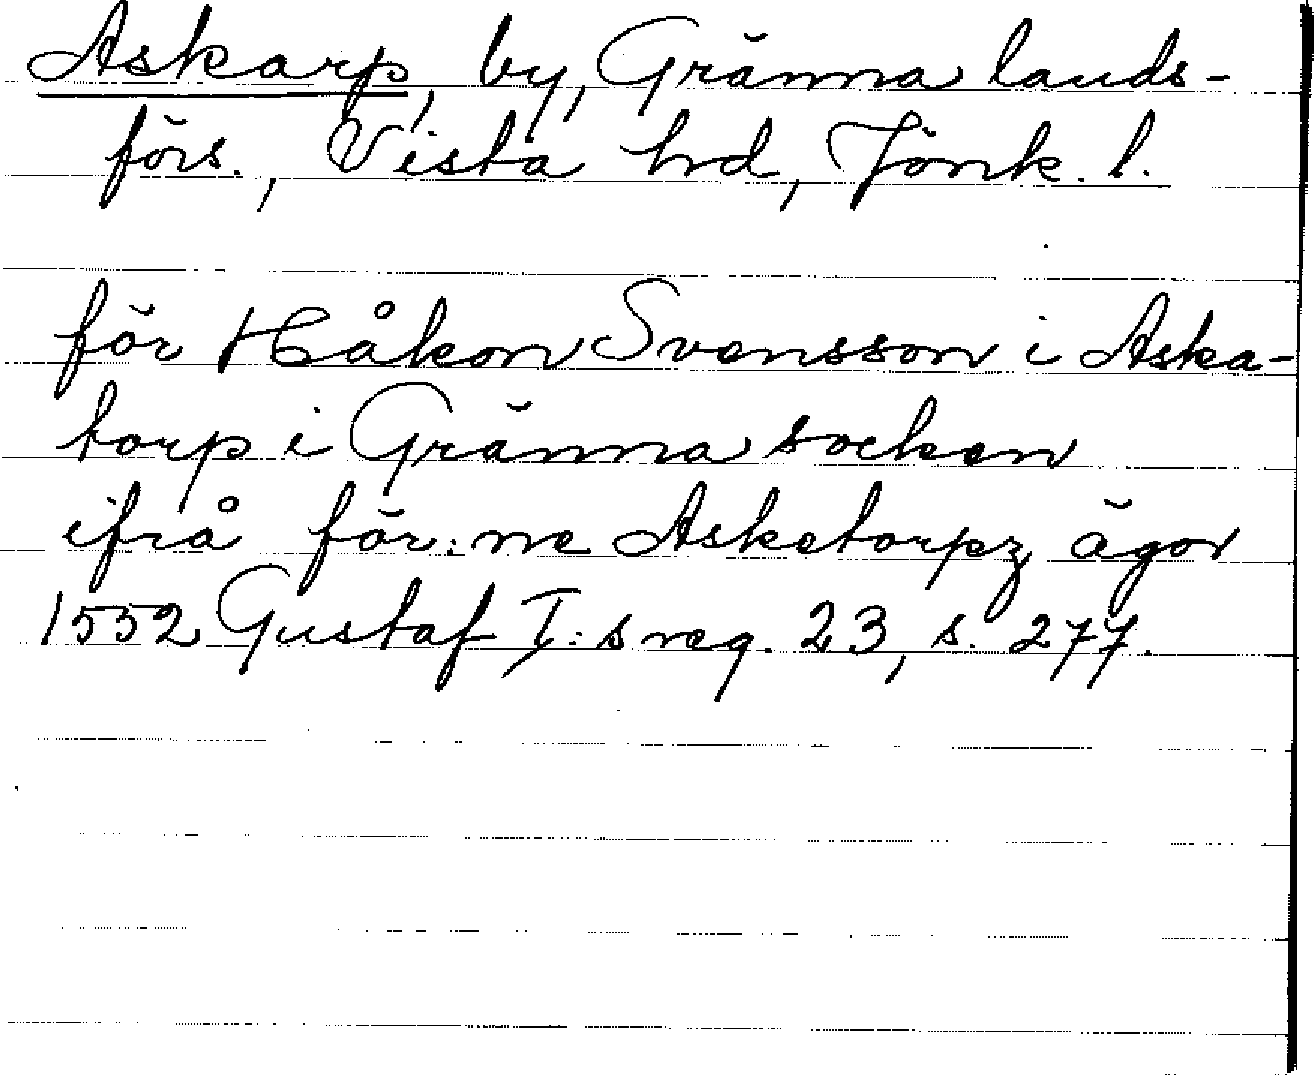 Askarp, by, Gränna lands-
förs., Vista hrd, Jönk. l.
för Håkon Svensson i Aska-
torp i Gränna socken
ifrå för:ne Asketorpz ägor
1552 Gustaf I:s reg. 23, s. 277.